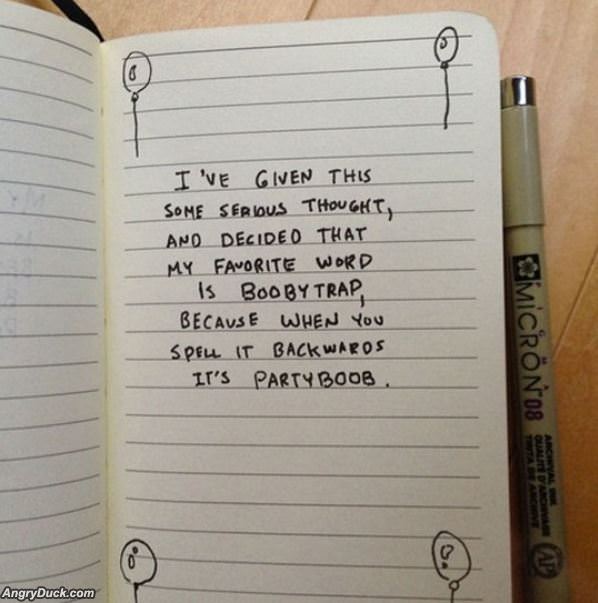 I'VE GIVEN THIS
SOME SERIOUS THOUGHT,
AND DECIDED THAT
MY FAVORITE WORD
IS BOOBYTRAP,
BECAUSE WHEN YOU
SPELL IT BACKWARDS
IT'S PARTYBOOB.
MICRON 08
ARCHIVAL INK
AP
AngryDuck.com